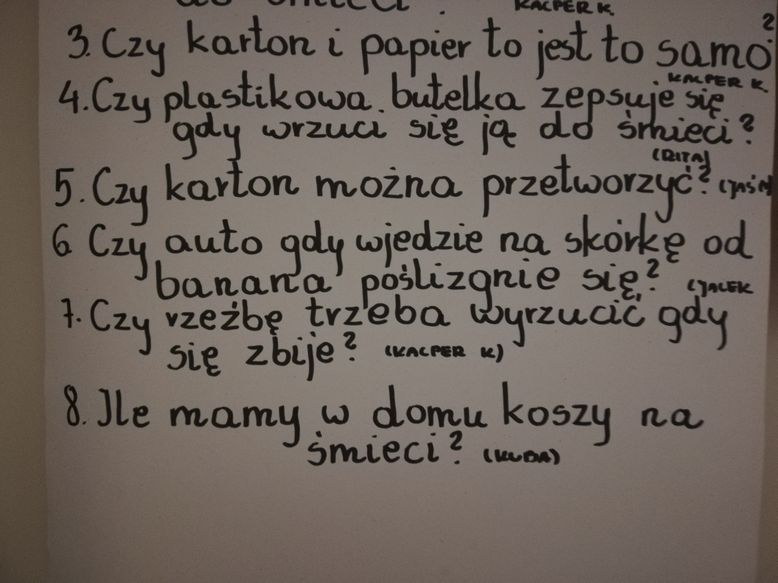 do śmieci? KACPER K.
3. Czy karton i papier to jest to samo?
KACPER K.
4. Czy plastikowa butelka zepsuje się
gdy wrzuci się ją do śmieci?
(RITA)
5. Czy karton można przetworzyć? (JAŚ)
6. Czy auto gdy wjedzie na skórkę od
banana poślizgnie się? (JACEK
7. Czy rzeźbę trzeba wyrzucić, gdy
się zbije? (KACPER K)
8. Ile mamy w domu koszy na
śmieci? (KUBA)